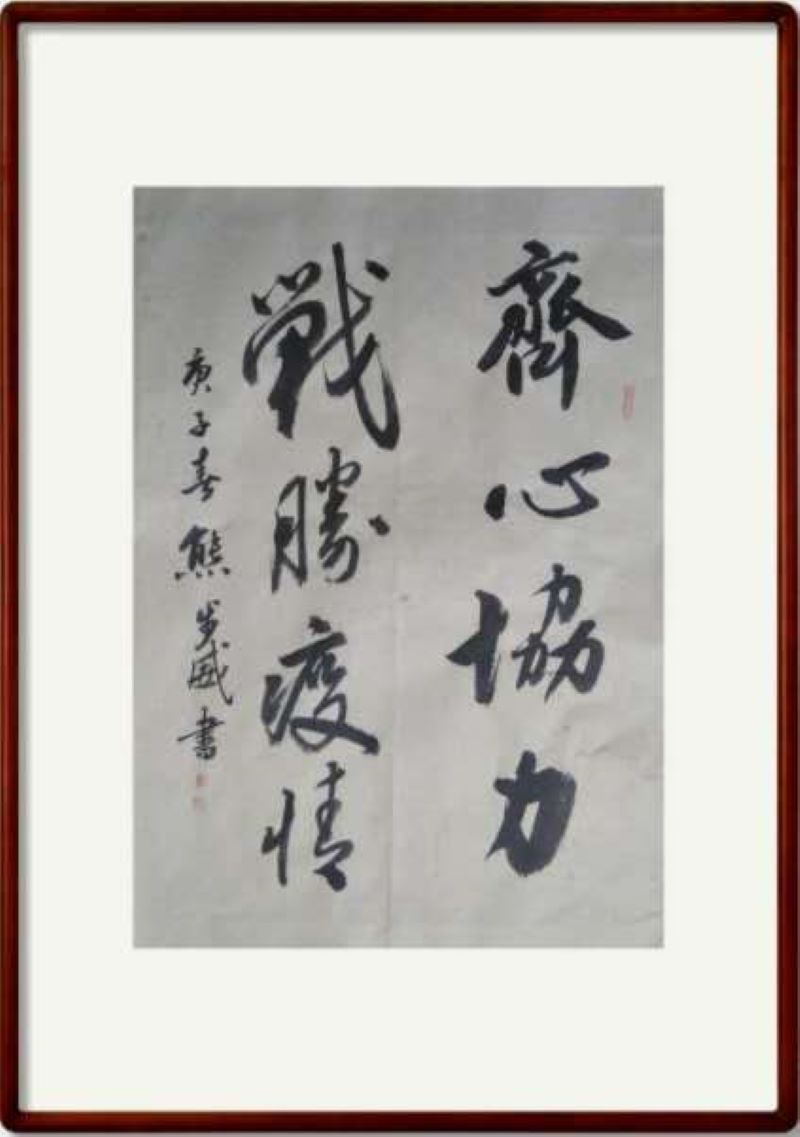 齊心協力
戰勝疫情
庚子春熊岁威書